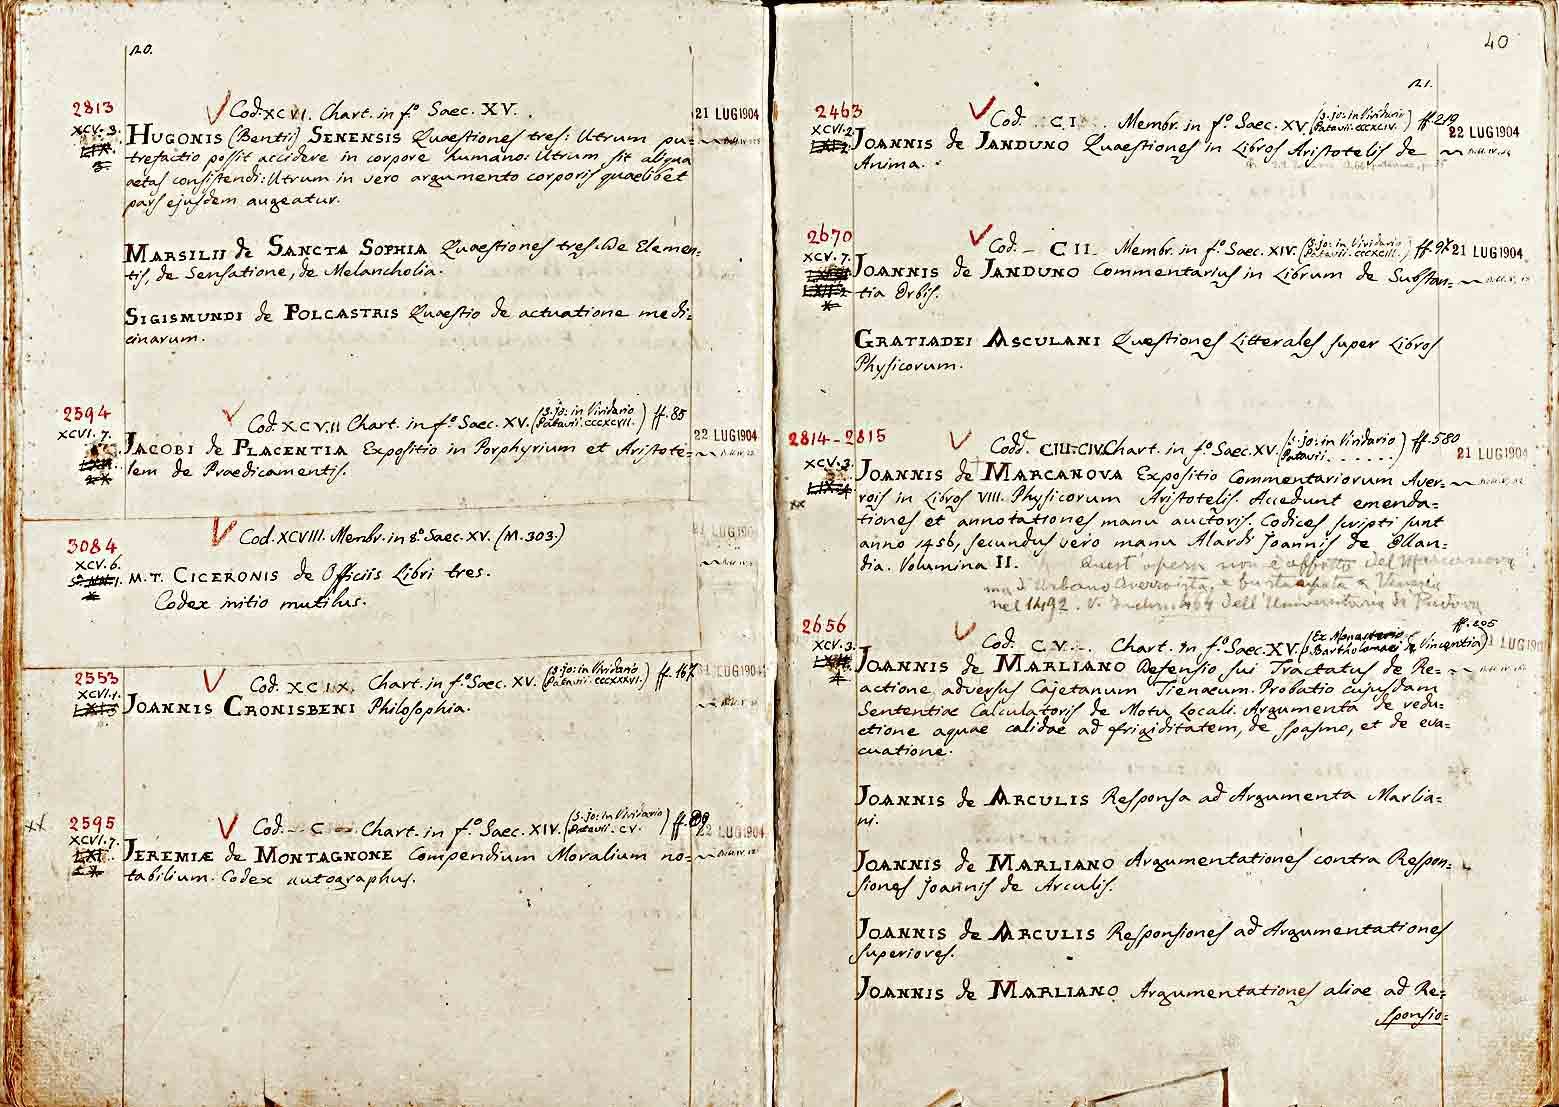 20.
2813
Cod. XCVI. Chart. in f.º Saec. XV.
21 LUG 1904
XCV. 3.
HUGONIS (Bentii) SENENSIS Quaestiones tres: Utrum pu=
trefactio possit accidere in corpore humano: Utrum sit aliqua
aetas consistendi: Utrum in vero argumento corporis quaelibet
pars ejusdem augeatur.
MARSILIJ de SANCTA SOPHIA Quaestiones tres. De Elemen=
tis, de Sensatione, de Melancholia.
SIGISMUNDI de POLCASTRIS Quaestio de actuatione medi=
cinarum.
2594
Cod. XCVII Chart. in f.º Saec. XV. (S. Jo: in Viridario
Patavii. CCCXCVII.) ff. 85
22 LUG 1904
XCVI. 7.
JACOBI de PLACENTIA Expositio in Porphyrium et Aristote=
lem de Praedicamentis.
3084
Cod. XCVIII. Membr. in 8º Saec. XV. (M. 303.)
21 LUG 1904
XCV. 6.
M. T. CICERONIS de Officiis Libri tres.
Codex initio mutilus.
2553
Cod. XCIX. Chart. in f.º Saec. XV. (S. Jo: in Viridario
Patavii. CCCXXXVI.) ff. 167
21 LUG 1904
XCVI. 1.
JOANNIS CRONISBENI Philosophia.
2595
Cod. C Chart. in f.º Saec. XIV. (S. Jo: in Viridario
Patavii. CV.) ff. 89
22 LUG 1904
XCVI. 7.
JEREMIÆ de MONTAGNONE Compendium Moralium no=
tabilium. Codex autographus.
40
21.
2463
Cod. CI. Membr. in f.º Saec. XV. (S. Jo: in Viridario
Patavii. CCCXLIV.) ff. 219
22 LUG 1904
XCVI. 2.
JOANNIS de JANDUNO Quaestiones in Libros Aristotelis de
Anima.
2670
Cod. CII Membr. in f.º Saec. XIV. (S. Jo: in Viridario
Patavii. CCCXCIII.) ff. 97
21 LUG 1904
XCV. 7.
JOANNIS de JANDUNO Commentarius in Librum de Substan=
tia Orbis.
GRATIADEI ASCULANI Quaestiones Litterales super Libros
Physicorum.
2814-2815
Codd. CIII.-CIV. Chart. in f.º Saec. XV. (S. Jo: in Viridario
Patavii . . . . . .) ff. 580
21 LUG 1904
XCV. 3.
JOANNIS de MARCANOVA Expositio Commentariorum Aver=
rois in Libros VIII. Physicorum Aristotelis. Accedunt emenda=
tiones et annotationes manu auctoris. Codices scripti sunt
anno 1456, secundus vero manu Alardi Joannis de Ollan=
dia. Volumina II.
Quest' opera non è affatto del Marcanova
ma d'Urbano averroista, e fu stampata a Venezia
nel 1492. V. dell'Universitaria di Padova
2656
Cod. CV. Chart. in f.º Saec. XV. (Ex Monasterio
S. Bartholomaei de Vincentia) ff. 205
21 LUG 1904
XCV. 3.
JOANNIS de MARLIANO Defensio sui Tractatus de Re=
actione adversus Cajetanum Tienaeum. Probatio cujusdam
Sententiae Calculatoris de Motu Locali. Argumenta de redu=
ctione aquae calidae ad frigiditatem, de spasmo, et de eva=
cuatione.
JOANNIS de ARCULIS Responsa ad Argumenta Marlia=
ni.
JOANNIS de MARLIANO Argumentationes contra Respon=
siones Joannis de Arculis.
JOANNIS de ARCULIS Responsiones ad Argumentationes
superiores.
JOANNIS de MARLIANO Argumentationes aliae ad Re=
sponsio=